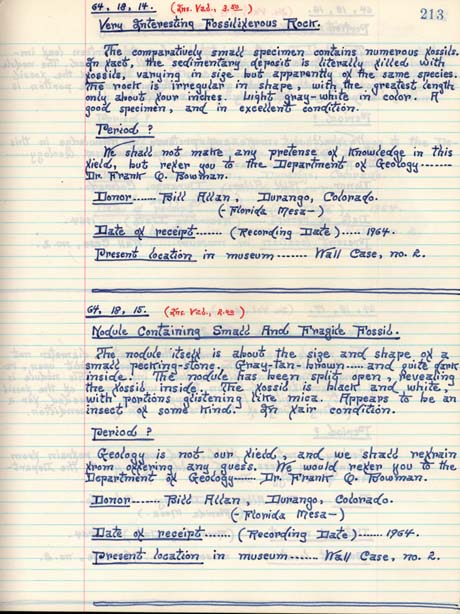 64, 18, 14. (Ins. Val., 3.50)
213
Very Interesting Fossiliferous Rock.
The comparatively small specimen contains numerous fossils.
In fact, the sedimentary deposit is literally filled with
fossils, varying in size but apparently of the same species.
The rock is irregular in shape, with the greatest length
only about four inches. Light gray-white in color. A
good specimen, and in excellent condition.
Period ?
We shall not make any pretense of knowledge in this
field, but refer you to the Department of Geology--------
Dr. Frank O. Bowman.
Donor....... Bill Allan, Durango, Colorado.
(-Florida Mesa-)
Date of receipt....... (Recording Date)..... 1964.
Present location in museum------- Wall Case, no. 2.
64, 18, 15. (Ins. Val.,
Nodule Containing Small And Fragile Fossil.
The nodule itself is about the size and shape of a
small pecking-stone. Gray-tan-brown..... and quite dark
inside. The nodule has been split open, revealing
the fossil inside. The fossil is black and white,
with portions glistening like mica. Appears to be an
insect of some kind. In fair condition.
Period ?
Geology is not our field, and we shall refrain
from offering any guess. We would refer you to the
Department of Geology------ Dr. Frank O. Bowman.
Donor....... Bill Allan, Durango, Colorado.
(-Florida Mesa-)
Date of receipt....... (Recording Date)....... 1964.
Present location in museum------- Wall Case, no. 2.